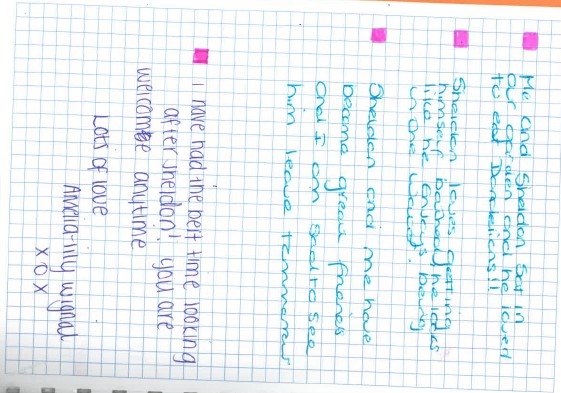 Me and Sheldon Sat in
our garden and he loved
to eat
Sheldon loves getting
himself he looks
like he enjoys being
in one
Sheldon and me have
became great friends
and I am sad to see
him leave
I have had the best time looking
after sheldon! you are
welcombe anytime
Lots of love
Amelia-lilly wignal
x o x